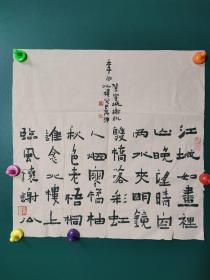 江城如畫裡
山晚望晴空
兩水夾明鏡
雙橋落彩虹
人烟寒橘柚
秋色老梧桐
誰念北樓上
臨風懷謝公
李白